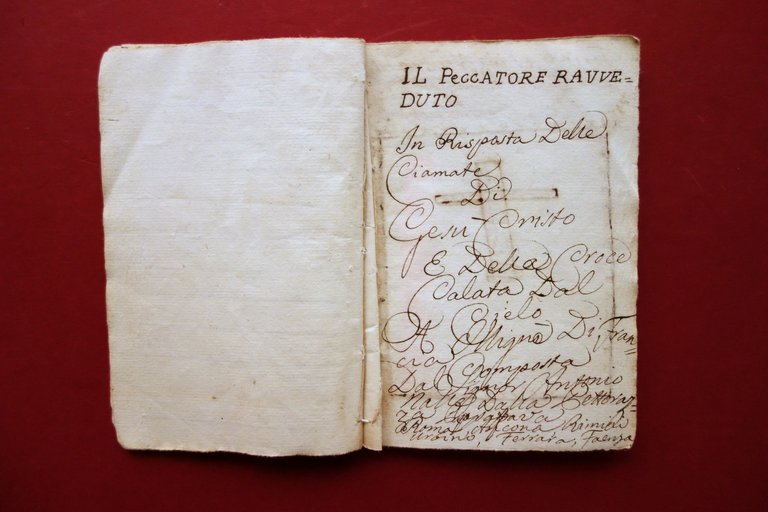 IL PECCATORE RAVVE=
DUTO
In Risposta Delle
Ciamate
Di
Gesu Cristo
E Della Croce
Calata Dal
Cielo
A Mignè Di Fran=
cia Composta
Dal Signor Antonio
Dalla
Roma, Ancona Rimini
Urbino, Ferrara, Faenza